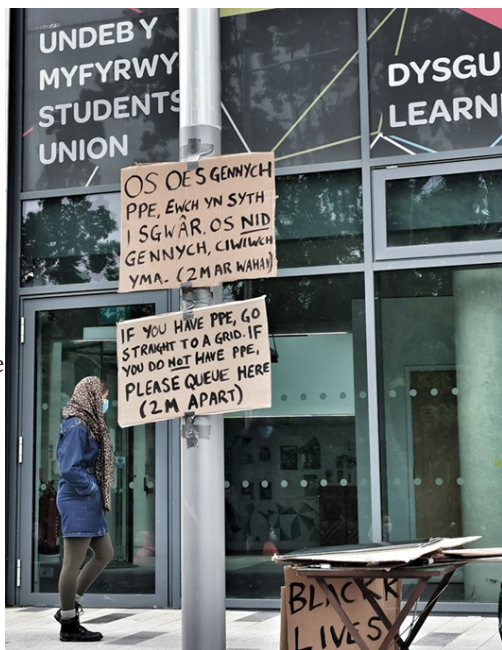 UNDEB Y
MYFYRWY
STUDENTS
UNION
DYSGU
LEARNI
OS OES GENNYCH
PPE, EWCH YN SYTH
I SGWÂR. OS NID
GENNYCH, CIWIWCH
YMA. (2M AR WAHAN)
IF YOU HAVE PPE, GO
STRAIGHT TO A GRID. IF
YOU DO NOT HAVE PPE,
PLEASE QUEUE HERE
(2M APART)
BLACK
LIVES